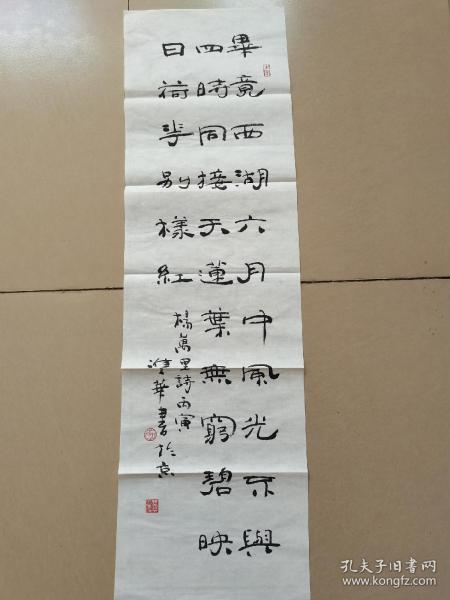 畢竟西湖六月中風光不與
四時同接天蓮葉無窮碧映
日荷花别樣紅
楊萬里詩丙寅
華書於京
孔夫子旧书网
www.kongfz.com